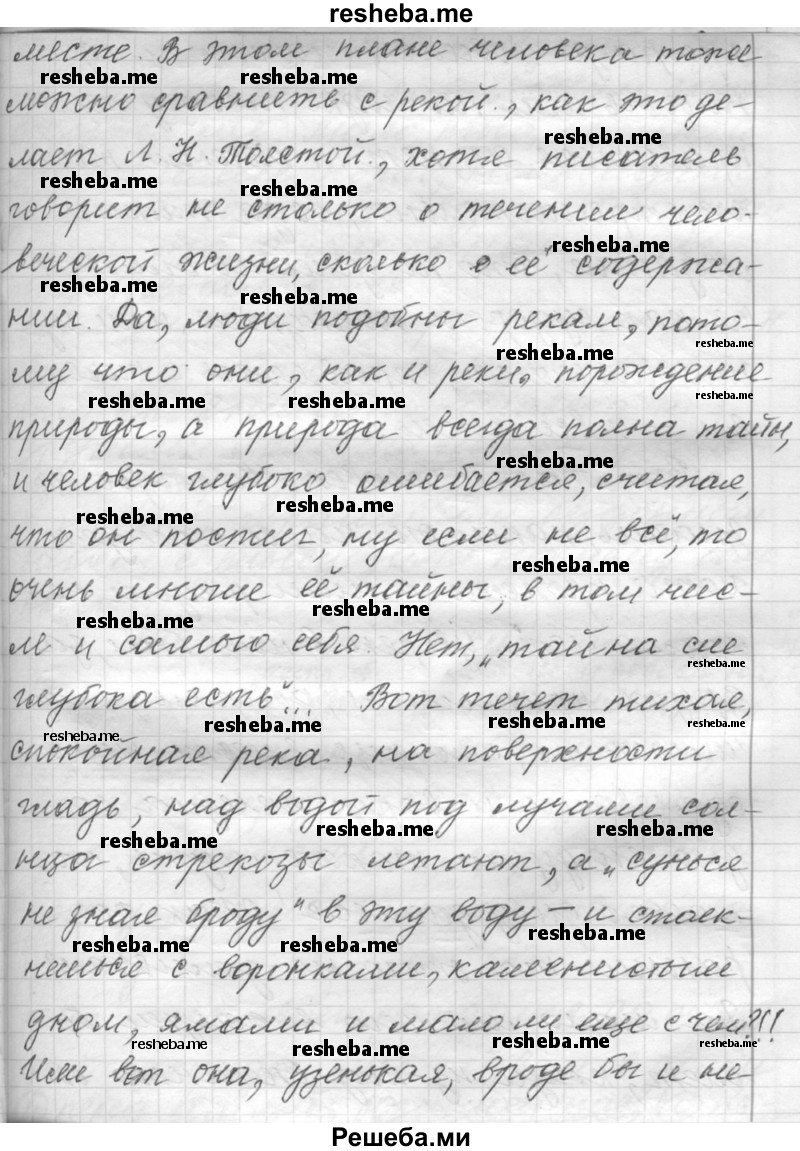 resheba.me
месте. В этом плане человека тоже
resheba.me resheba.me
можно сравнить с рекой, как это де-
resheba.me
лает Л. Н. Толстой, хотя писатель
resheba.me resheba.me
говорит не столько о течении чело-
resheba.me
веческой жизни, сколько о её содержа-
resheba.me resheba.me
нии. Да, люди подобны рекам, пото-
resheba.me resheba.me
му что они, как и реки, порождение
resheba.me resheba.me resheba.me
природы, а природа всегда полна тайн,
resheba.me
и человек глубоко ошибается, считая,
resheba.me resheba.me
что он постиг, ну если не всё, то
resheba.me
очень многие её тайны, в том чис-
resheba.me resheba.me
ле и самого себя. Нет, „тайна сие
resheba.me
глубока есть"... Вот течет тихая,
resheba.me resheba.me resheba.me resheba.me
спокойная река, на поверхности
гладь, над водой под лучами сол-
resheba.me resheba.me resheba.me
нца стрекозы летают, а „сунься
не зная броду" в эту воду – и столк-
resheba.me resheba.me resheba.me
нешься с воронками, каменистым
дном, ямами и мало ли еще с чем?!!
resheba.me resheba.me resheba.me resheba.me
Или вот она, узенькая, вроде бы и не-
Решеба.ми